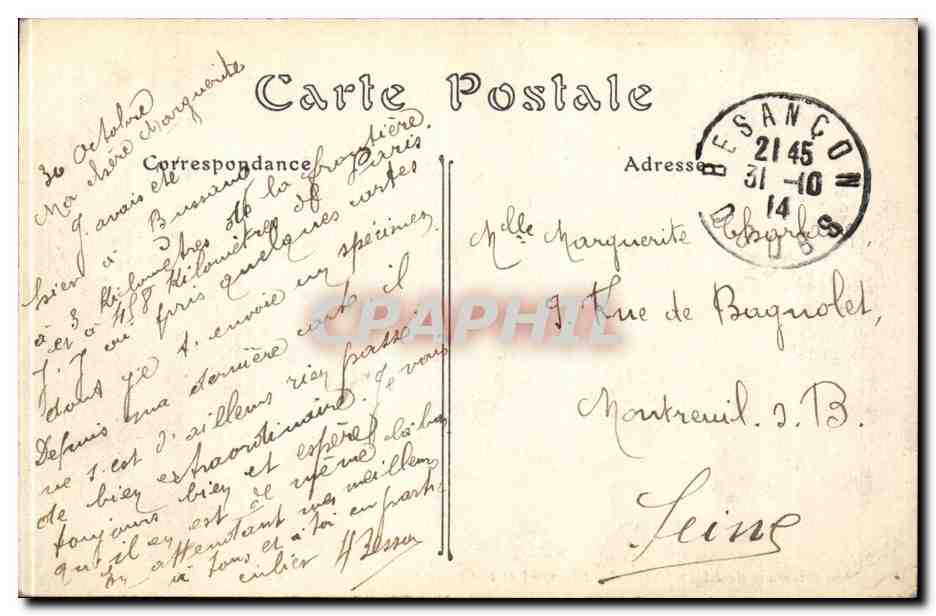 Carte Postale
Correspondance
Adresse
BESANÇON
21 45
31 -10
14
DOUBS
30 octobre
Ma chère Marguerite
J'avais été
hier à Bussang
à 3 kilomètres de la frontière
et à 458 kilomètres de Paris
J'y ai pris quelques cartes
dont je t'envoie un spécimen.
Depuis ma dernière carte il
ne s'est d'ailleurs rien passé
de bien extraordinaire. Je vais
toujours bien et espère
qu'il en est de même là-bas
En attendant mes meilleurs
à tous et à toi en parti-
culier HBesson
Mlle Marguerite
9 Rue de Bagnolet,
Montreuil s. B.
Seine
CPAPHIL